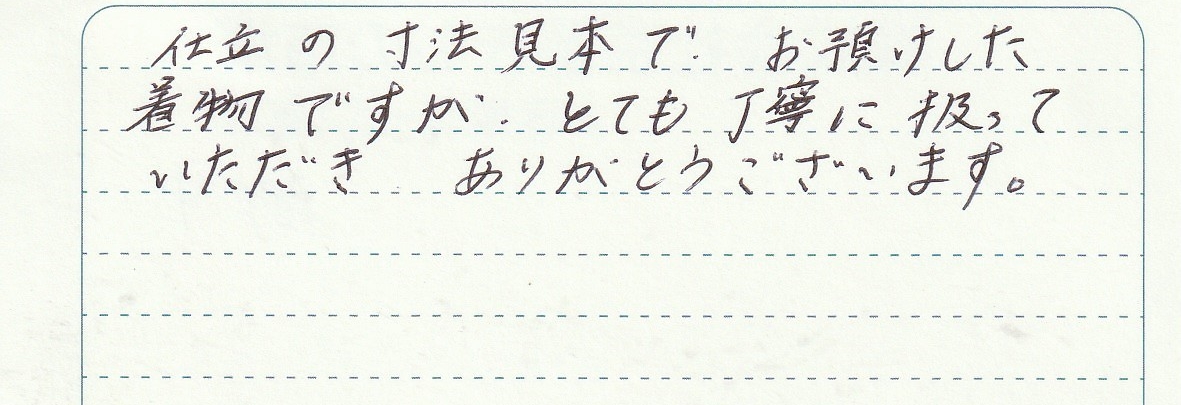 仕立の寸法見本で お預けした
着物ですが、とても丁寧に扱って
いただき ありがとうございます。